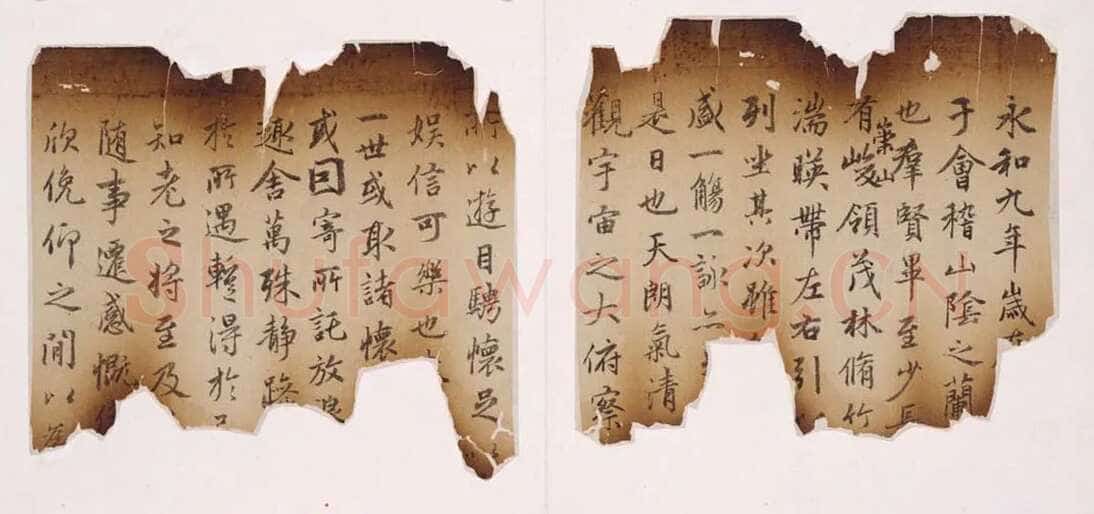 永和九年歲在
于會稽山陰之蘭
也羣賢畢至少長
有崇山峻領茂林脩竹
湍暎帶左右引
列坐其次雖
盛一觴一詠亦
是日也天朗氣清
觀宇宙之大俯察
所以遊目騁懷足
娛信可樂也
一世或取諸懷
或因寄所託放浪
趣舍萬殊静躁
於所遇蹔得於
知老之將至及
随事遷感慨
欣俛仰之閒以
Shufawang.CN